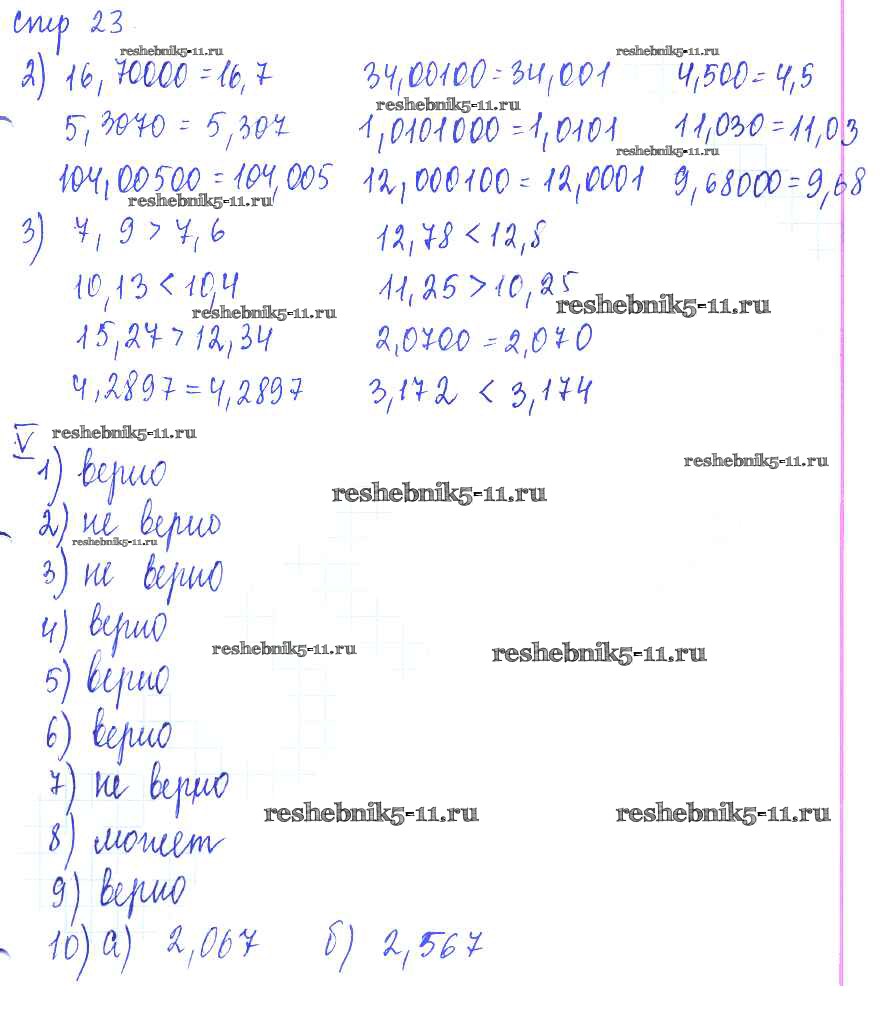 стр 23
reshebnik5-11.ru reshebnik5-11.ru
2) 16,70000 = 16,7 34,00100 = 34,001 4,500 = 4,5
reshebnik5-11.ru
5,3070 = 5,307 1,0101000 = 1,0101 11,030 = 11,03
reshebnik5-11.ru
104,00500 = 104,005 12,000100 = 12,0001 9,68000 = 9,68
reshebnik5-11.ru
3) 7,9 > 7,6 12,78 < 12,8
10,13 < 10,4 11,25 > 10,25
reshebnik5-11.ru reshebnik5-11.ru
15,27 > 12,34 2,0700 = 2,070
4,2897 = 4,2897 3,172 < 3,174
V reshebnik5-11.ru
1) верно reshebnik5-11.ru
reshebnik5-11.ru
2) не верно
reshebnik5-11.ru
3) не верно
4) верно
reshebnik5-11.ru reshebnik5-11.ru
5) верно
6) верно
7) не верно
reshebnik5-11.ru reshebnik5-11.ru
8) может
9) верно
10) а) 2,067 б) 2,567